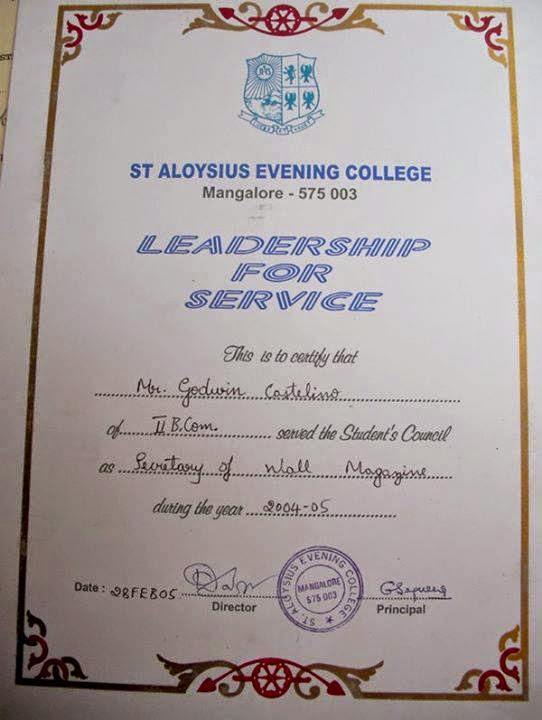 ST ALOYSIUS EVENING COLLEGE
Mangalore - 575 003
LEADERSHIP
FOR
SERVICE
This is to certify that
Mr. Godwin Castelino
of II B.Com. served the Student's Council
as Secretary of Wall Magazine
during the year 2004-05
Date : 28FEB05
Director
ST. ALOYSIUS EVENING COLLEGE
MANGALORE
575 003
Principal